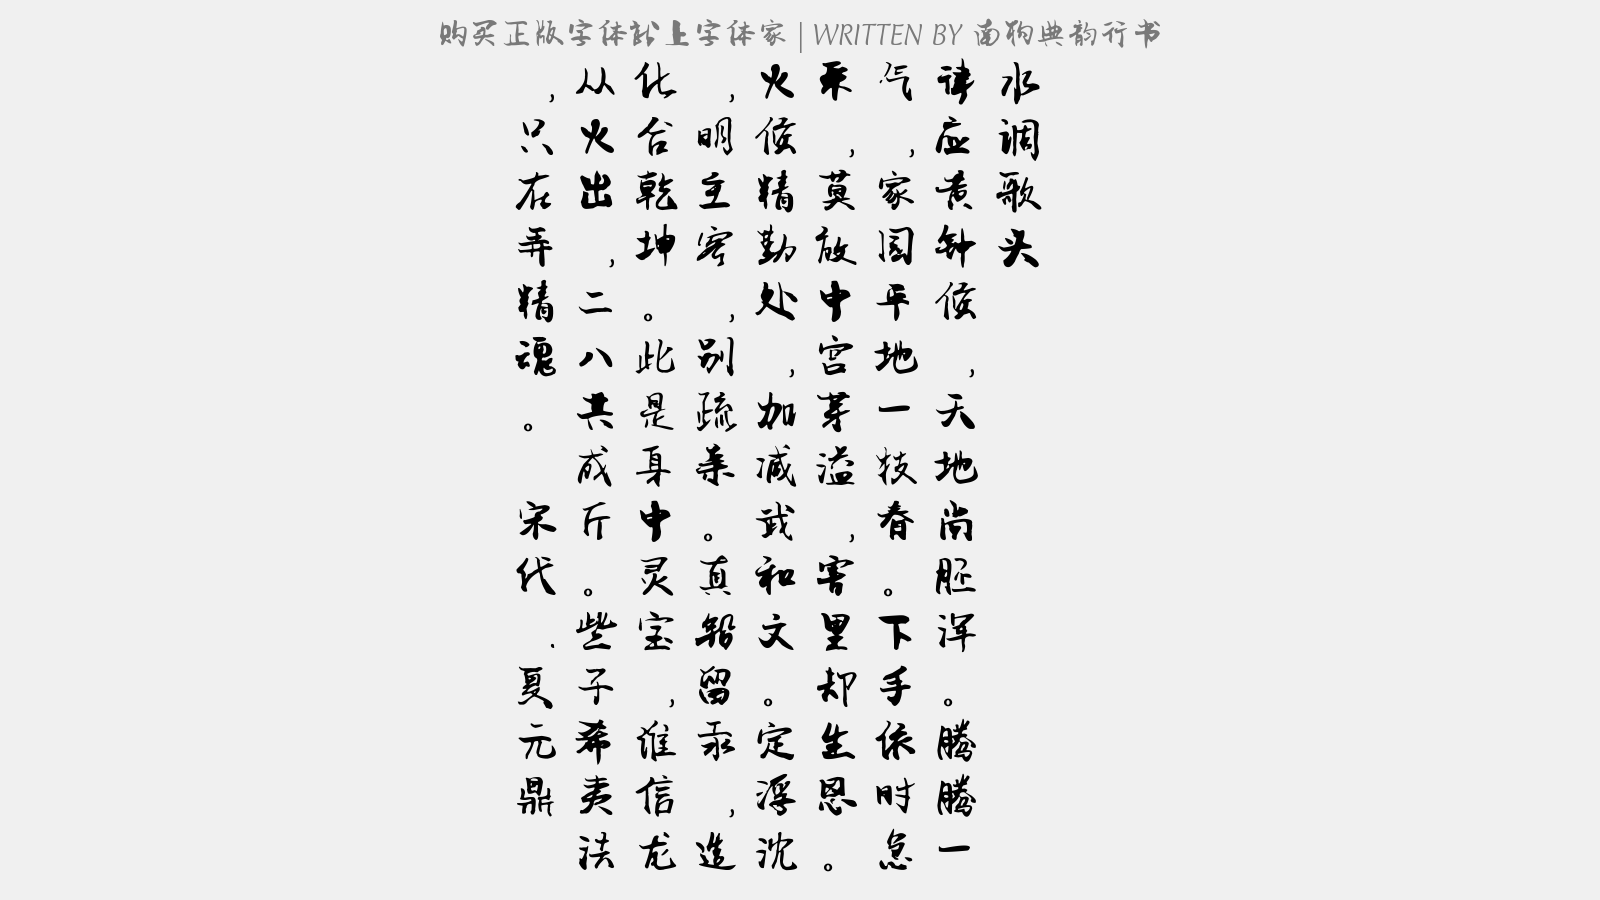 购买正版字体就上字体家 | WRITTEN BY 南构典韵行书
水调歌头
律应黄钟候，天地尚胚浑。腾腾一
气，家园平地一枝春。下手依时急
采，莫放中宫芽溢，害里却生恩。
火候精勤处，加减武和文。定浮沈
，明主客，别疏亲。真铅留汞，造
化合乾坤。此是身中灵宝，谁信龙
从火出，二八共成斤。些子希夷法
，只在弄精魂。 宋代.夏元鼎